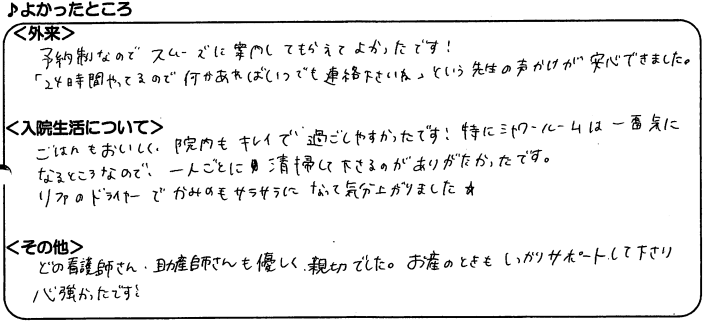 ♪よかったところ
<外来>
予約制なので スムーズに案内してもらえてよかったです！
「24時間やってるので何かあればいつでも連絡下さいね」という先生の声かけが安心できました。
<入院生活について>
ごはんもおいしく、院内もキレイで過ごしやすかったです！特にシャワールームは一番気に
なるところなので、一人ごとに清掃して下さるのがありがたかったです。
リファのドライヤーでかみのもサラサラになって気分上がりました☆
<その他>
どの看護師さん・助産師さんも優しく、親切でした。お産のときもしっかりサポートして下さり
心強かったです！